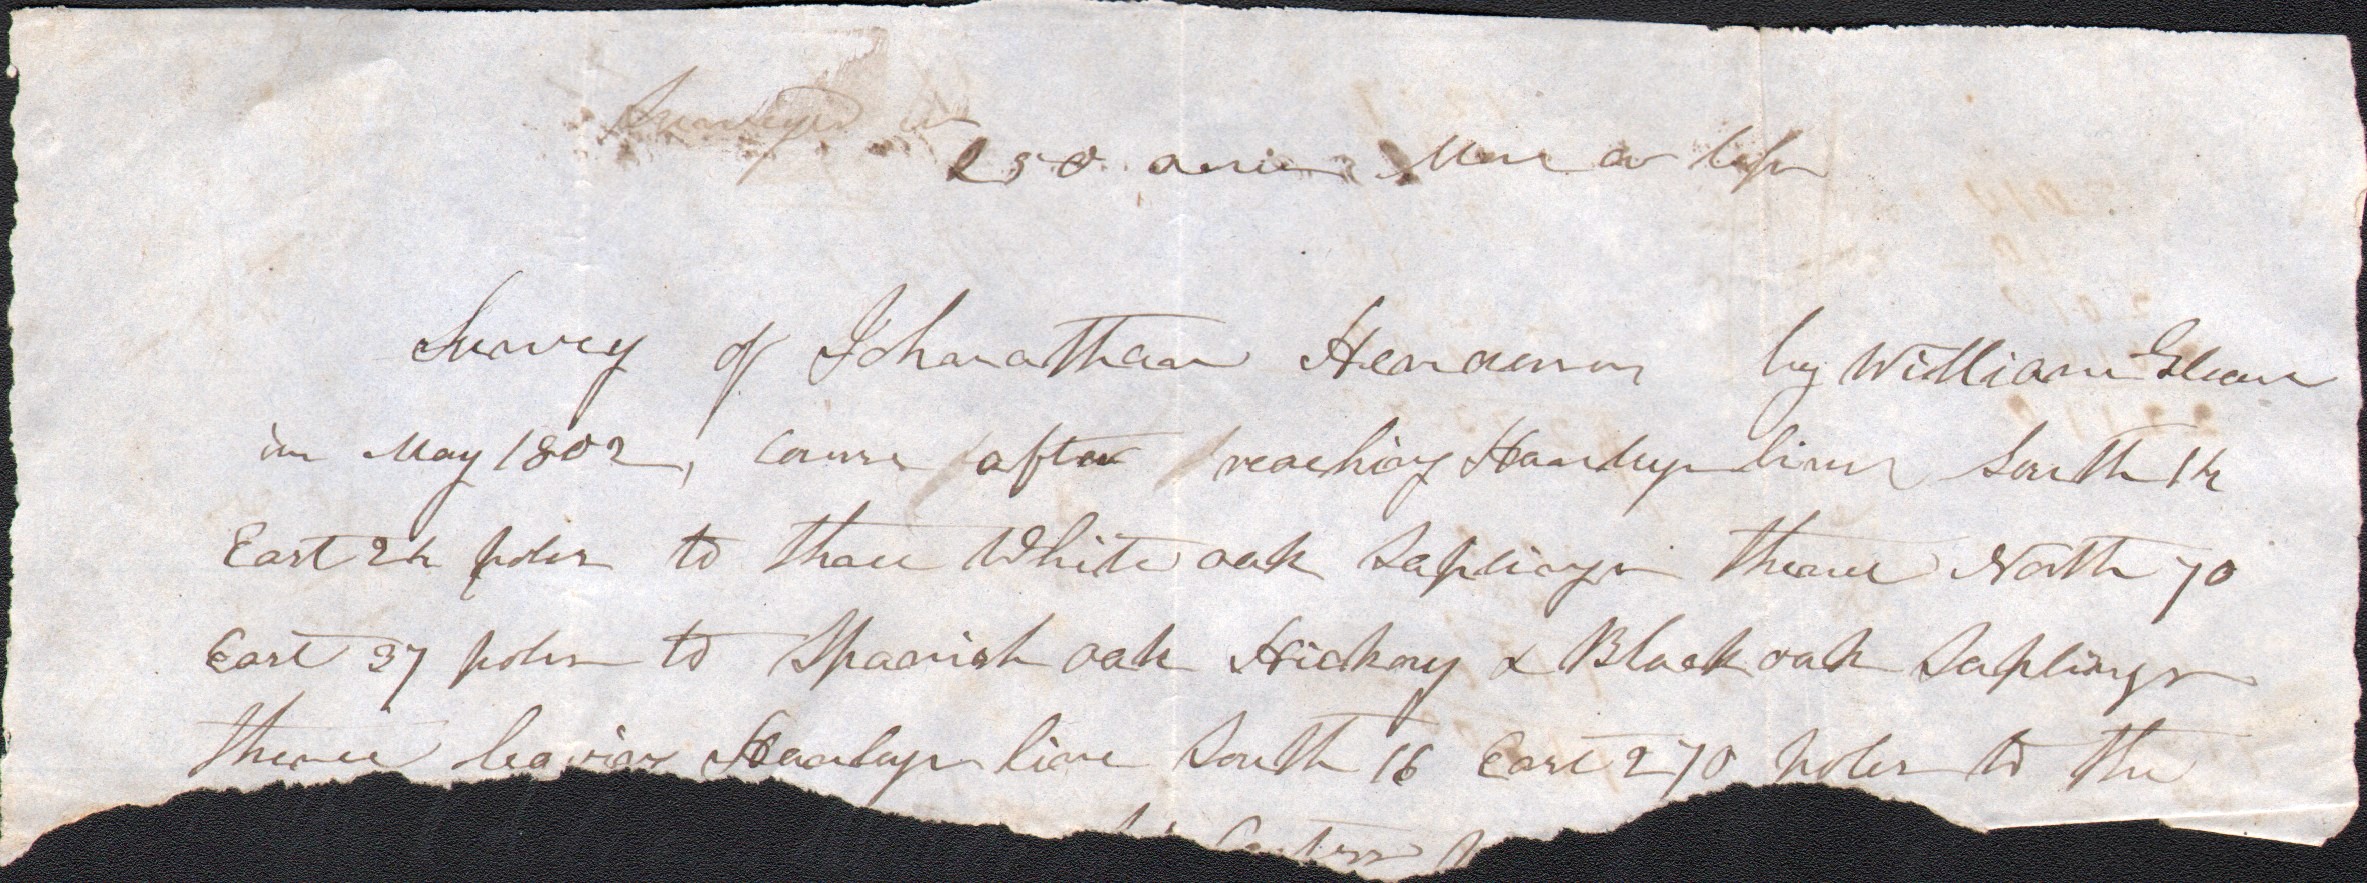 Surveyed
250 acres More or less
Survey of Johnathan Henderson by William
in May 1802, Course after reaching line South 14
East 24 poles to three White oak Saplings thence North 70
East 37 poles to Spanish oak Hickory & Black oak Saplings
thence leaving line South 16 East 270 poles to the